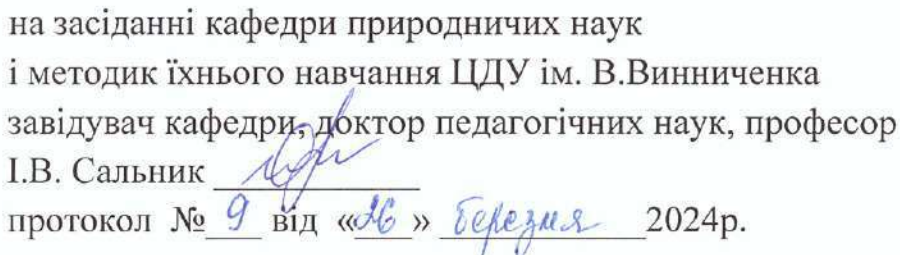 на засіданні кафедри природничих наук
і методик їхнього навчання ЦДУ ім. В.Винниченка
завідувач кафедри, доктор педагогічних наук, професор
І.В. Сальник
протокол № 9 від «26» березня 2024р.